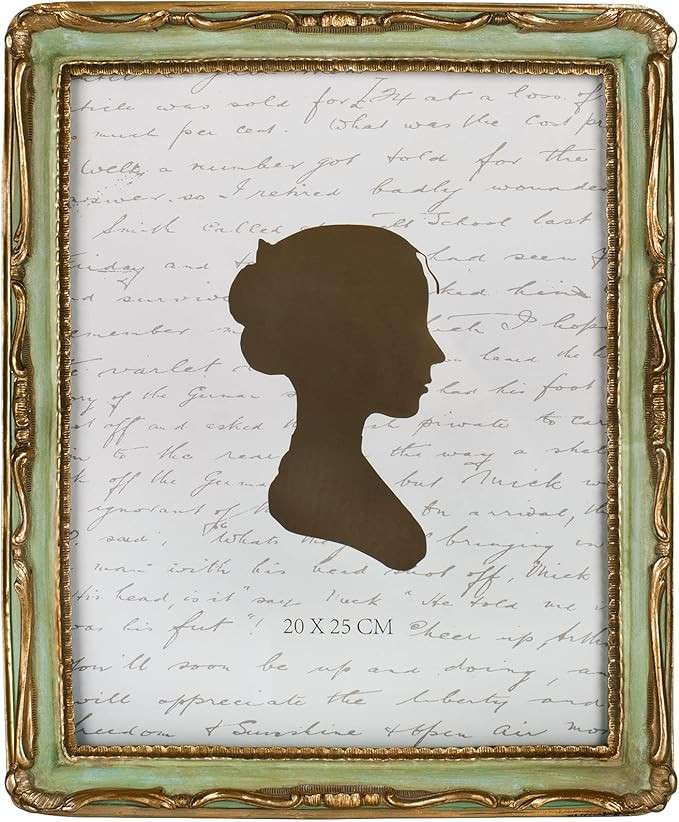 article was sold for £24 at a loss of
much per cent. What was the cost
Well, a number got told for the
answer. so I retired badly
Smith called School last
Friday and had seen
and him
remember I hope
varlet heard the
of the German had his foot
off and asked private to
to the the way a
off the but Mick
ignorant of In arrival, the
said, "What's bringing in
man with his head shot off, Mick
His head, is it" say Mick "He told me
was his feet"! Cheer up,
20 X 25 CM
You'll soon be up and doing, an
will appreciate the liberty and
freedom & Sunshine & Open Air